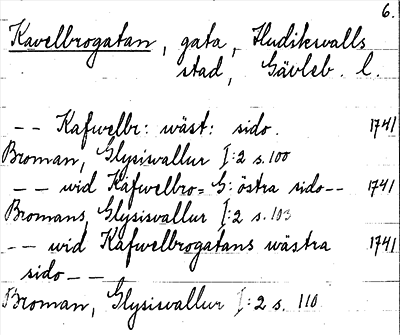 6.
Kavelbrogatan, gata, Hudiksvalls
stad, Gävleb. l.
-- Kafwelbr: wäst: sido. 1741
Broman, Glysisvallur I:2 s. 100
-- wid Kafwelbro= G: östra sido-- 1741
Bromans, Glysisvallur I:2 s. 103
-- wid Kafwelbrogatans wästra 1741
sido--
Broman, Glysisvallur I:2 s. 110